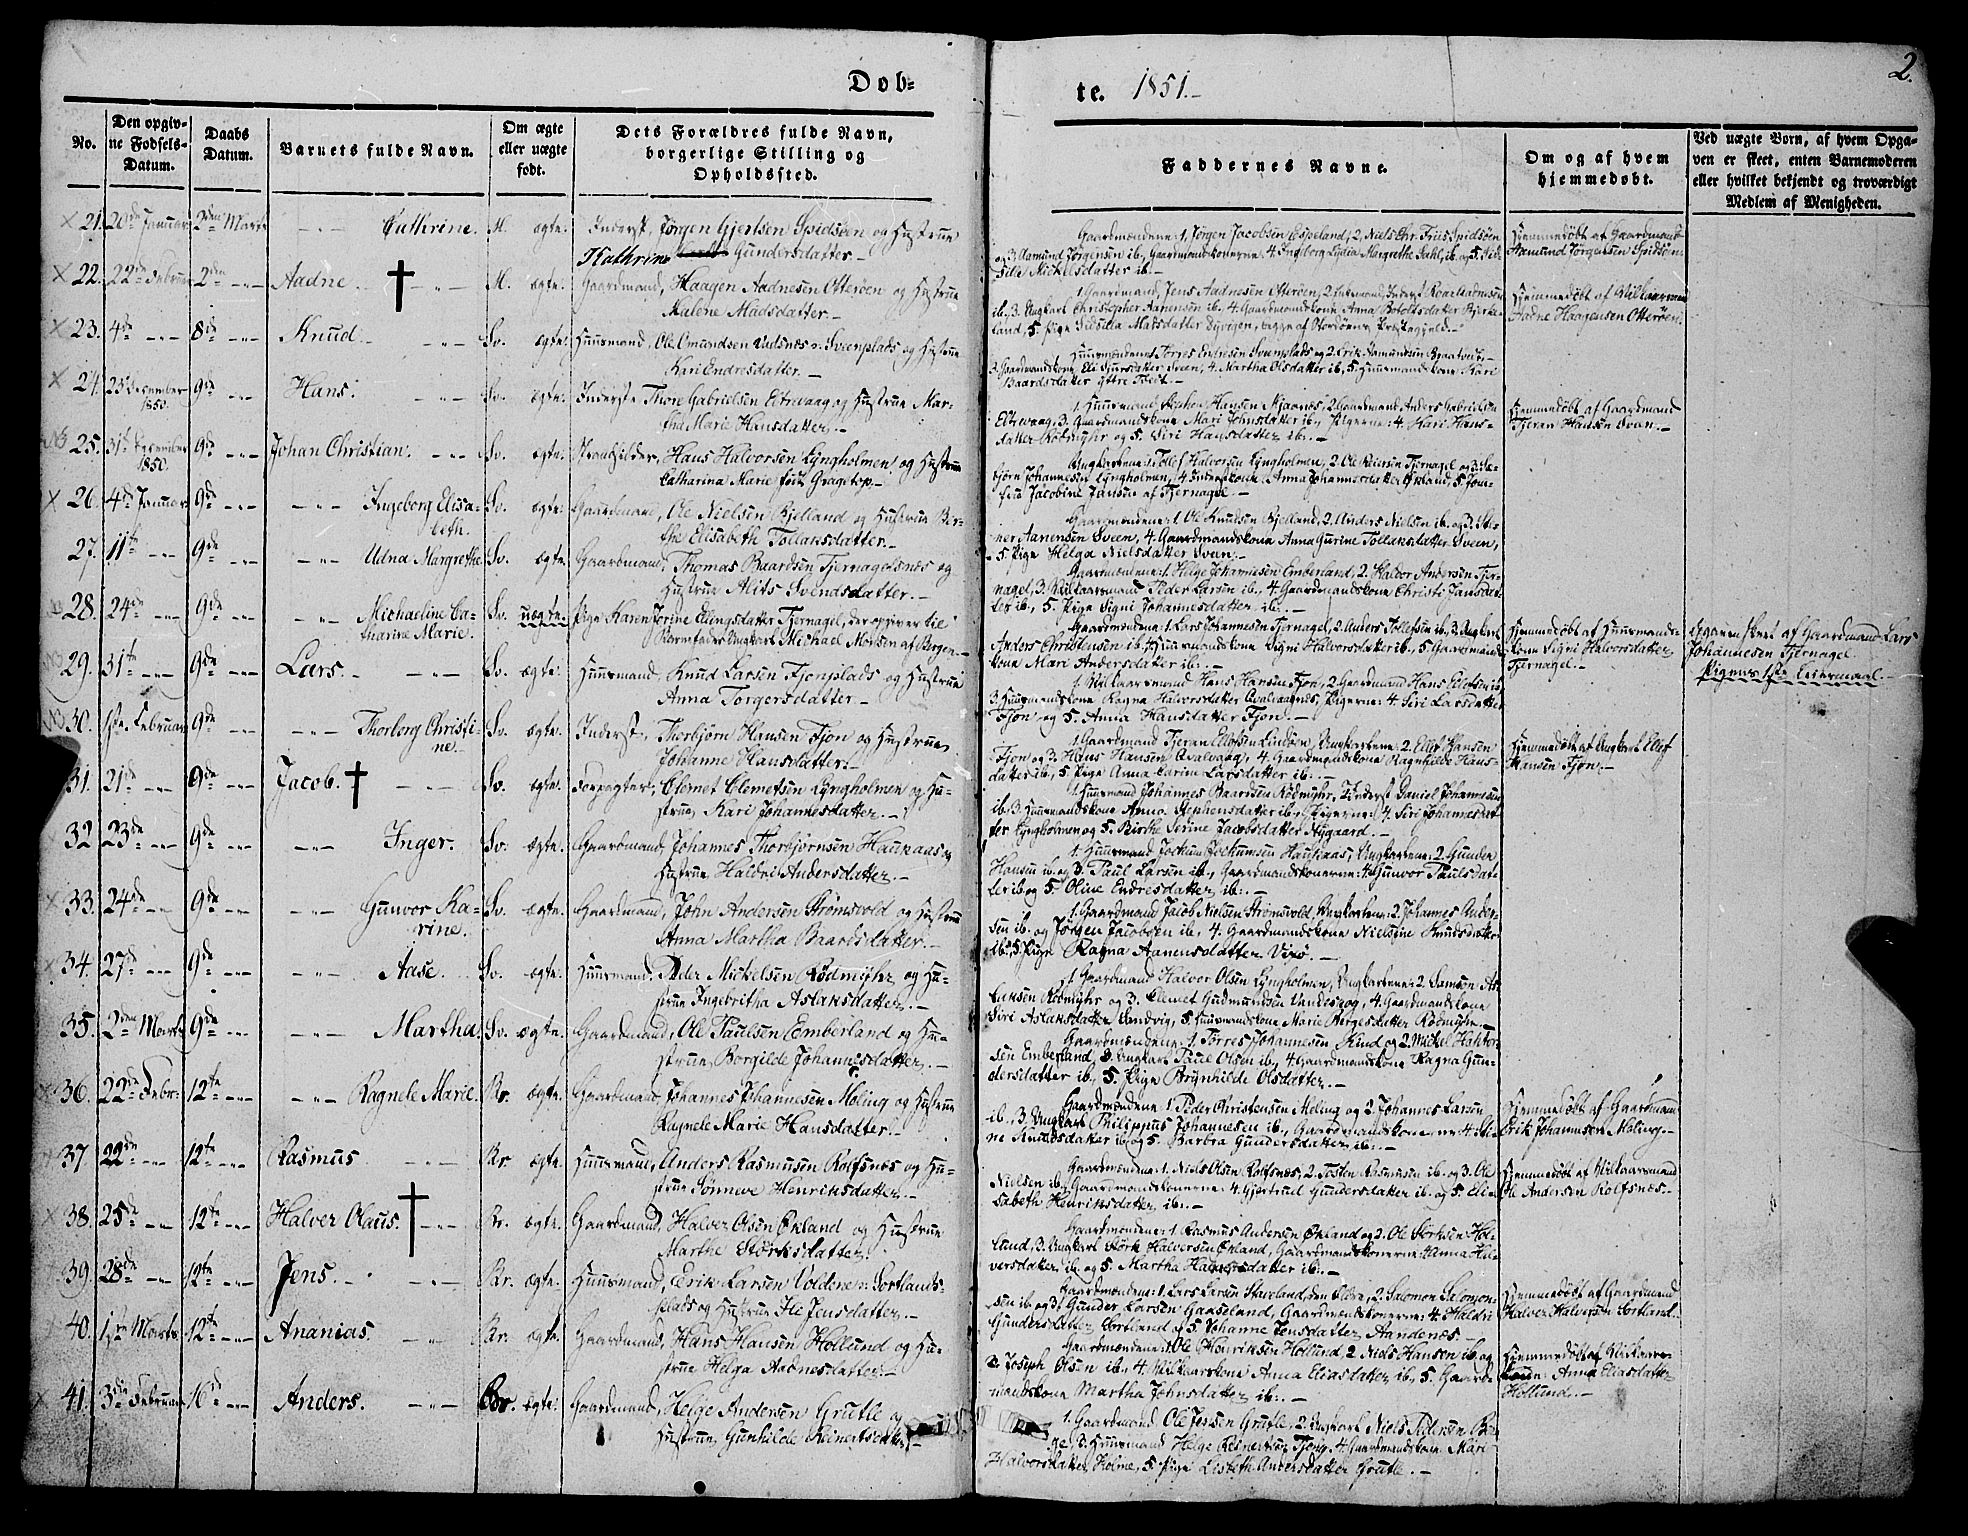 Døb=
te. 1851.-
2.
No.
Den opgiv-
ne Fødsels-
Datum.
Daabs
Datum.
Barnets fulde Navn.
Om ægte
eller uægte
født.
Dets Forældres fulde Navn,
borgerlige Stilling og
Opholdssted.
Faddernes Navne.
Om og af hvem
hjemmedøbt.
Ved uægte Børn, af hvem Opga-
ven er skeet, enten Barnemoderen
eller hvilket bekjendt og troværdigt
Medlem af Menigheden.
21. 20de Januar 2den Marts Cathrine. M. ægte. Inderst, Jørgen Gjertsen Spidsøen og Hustrue
Kathrine Gundersdatter.-
Gaardmændene: 1, Jørgen Jacobsen Espeland, 2, Niels Chr. Friis Spidsøen
og 3. Aamund Jørgensen ib., Gaardmandskonerne 4. Ingeborg Lydia Margrethe Dahl, ib. og 5.
Mickelsdatter ib.-
Hjemmedøbt af Gaardmand
Aamund Jørgensen Spidsøen.
22. 22de Februar 2den Aadne. M. ægte. Gaardmand, Haagen Aadnesen Otterøen og Hustrue
Malene Madsdatter.-
1. Gaardmand, Jens Aadnesen Otterøen, 2.
ib., 3. Ungkarl Christopher Aanensen ib. 4. Gaardmandskone Anna
land, 5. Pige Madsdatter
Hjemmedøbt af Vilkaarsmand
Aadne Haagensen Otterøen.
23. 4de 8de Knud. Sv. ægte. Huusmand, Ole Omundsen Vadsnæs v. Sveenplads og Hustrue
Kari Endresdatter.-
Huusmændene: 1. Torres Endresen Sveenplads og 2. Erik Aamundsen
3. Gaardmandskone, Eli Sjursdatter Sveen, 4. Martha Olsdatter ib., 5. Huusmandskone Kari
Baardsdatter yttre
24. 23de December 1850. 9de Hans. Sv. ægte. Inderste Thore Gabrielsen Eltrevaag og Hustrue Mar-
tha Marie Hansdatter.-
1. Huusmand, Hansen 2. Gaardmand, Anders Gabrielsen
Eltrevaag, 3. Gaardmandskone Mari Johnsdatter ib., Pigerne: 4. Kari Hans-
datter Rødmyhr og 5. Siri Hansdatter ib.-
Hjemmedøbt af Gaardmand
Tjeran Hansen
25. 31te December 1850. 9de Johan Christian. Sv. ægte. Strandsidder, Hans Halvorsen Lyngholmen, og Hustrue
Catharina Marie født
Ungkarlene: 1. Tollef Halvorsen Lyngholmen, 2. Ole Tjernagel og 3.
bjørn Johannesen Lyngholmen, 4. Inderstkone Anna Johannesdatter 5. Jom-
frue Jacobine Jansen af Tjernagel.-
26. 4de Januar 9de Ingeborg Elisa-
beth. Sv. ægte. Gaardmand, Ole Nielsen Bjelland og Hustrue Ber-
the Elisabeth Tollaksdatter.-
Gaardmændene: 1. Ole Knudsen Bjelland, 2. Anders Nielsen ib. og 3.
ner Aanensen Sveen, 4. Gaardmandskone Anna Gurine Tollaksdatter Sveen,
5. Pige Helga Nielsdatter Sveen.-
27. 11te 9de Udna Margrethe. Sv. ægte. Gaardmand, Thomas Baardsen Tjernagelsnæs og
Hustrue Alits Svendsdatter.-
Gaardmændene: 1. Helge Johannesen Emberland, 2. Haldor Andersen Tjer-
nagel, 3. Vilkaarsmand Peder Larsen ib., 4. Gaardmandskone Christi Jansdat-
ter ib., 5. Pige Signi Johannesdatter ib.-
28. 24de 9de Michaeline Ca-
tharine Marie. Sv. uægte. Pige Karen Jorine Ellingsdatter Tjernagel, der opgiver til
Barnefader Ungkarl Michael Monsen af Bergen.-
Gaardmændene: 1. Lars Johannesen Tjernagel, 2. Anders Tollefsen ib., 3. Ungkarl
Anders Christensen ib., 4. Huusmandskone Signi Halvorsdatter ib., 5. Gaardmands-
kone Mari Andersdatter ib.-
Hjemmedøbt af Huusmands-
kone Signi Halvorsdatter
Tjernagel.-
Opgaven skeet af Gaardmand Lars
Johannesen Tjernagel.
Pigens 1ste Leiermaal.-
29. 31te 9de Lars. Sv. ægte. Huusmand, Knud Larsen Fjonplads og Hustrue
Anna Torgersdatter.-
1. Vilkaarsmand Hans Hansen Fjon, 2. Gaardmand Hans ib.,
3. Huusmandskone Ragna Halvorsdatter Pigerne: 4. Siri Larsdatter
Fjon og 5. Anna Hansdatter Fjon.-
30. 1ste Februar 9de Thorborg Christi-
ne. Sv. ægte. Inderst, Thorbjørn Hansen Fjon og Hustrue
Johanne Hansdatter.-
1. Gaardmand Tjeran Ellefsen Lindøen, Ungkarlene: 2. Ellef Hansen
Fjon og 3. Hans Hansen Qvalvaag, 4. Gaardmandskone Ragnhilde Hans-
datter ib., 5. Pige Anna Carine Larsdatter ib.-
Hjemmedøbt af Ungkarl Ellef
Hansen Fjon.-
31. 21de 9de Jacob. Sv. ægte. Forpagter, Clemet Clemetsen Lyngholmen og Hu-
strue Kari Johannesdatter.-
1. Huusmand Johannes Baardsen Rødmyhr, 2. Inderst Daniel Johannesen
ib., 3. Huusmandskone Anna Stephensdatter ib., Pigerne: 4. Siri Johannesdat-
ter Lyngholmen og 5. Birthe Serine Jacobsdatter Nygaard.-
32 23de 9de Inger. Sv. ægte. Gaardmand, Johannes Thorbjørnsen Haukaas og
Hustrue Haldri Andersdatter.-
1. Huusmand Jockum Jockumsen Haukaas, Ungkarlene: 2. Gunder
Hansen ib. og 3. Paul Larsen ib., Gaardmandskonerne: 4. Gunvor Paulsdat-
ter ib. og 5. Oline Endresdatter ib.-
33. 24de 9de Gunvor Ka-
rine. Sv. ægte. Gaardmand, John Andersen Strømsvold og Hustrue
Anna Martha Baardsdatter.-
1. Gaardmand Jacob Nielsen Strømsvold, Ungkarlene: 2. Johannes Ander-
sen ib. og Jørgen Jacobsen ib., 4. Gaardmandskone Nielsine Knudsdatter
ib., 5. Pige Ragna Aanensdatter Vixø.-
34. 27de 9de Aase. Sv. ægte. Huusmand, Peder Mickelsen Rødmyhr og Hu-
strue Ingebritha Aslaksdatter.-
1. Gaardmand Halvor Olsen Lyngholmen, Ungkarlene: 2. Samson As-
laksen Rødmyhr og 3. Clemet Gudmundsen 4. Gaardmandskone
Siri Aslaksdatter Sandvig, 5. Huusmandskone Marie Børgesdatter Rødmyhr.-
35. 2den Marts 9de Martha. Sv. ægte. Gaardmand, Ole Paulsen Emberland og Hu-
strue Borgilde Johannesdatter.-
Gaardmændene: 1. Torres Johannesen Kind og 2. Mickel Haktor-
sen Emberland, 3. Ungkarl Paul Olsen ib., 4. Gaardmandskone Ragna Gun-
dersdatter ib., 5. Pige Brynhilde Olsdatter.-
36. 22de Febr. 12te Ragnele Marie. Br. ægte. Gaardmand, Johannes Johannesen Meling og Hustrue
Ragnele Marie Hansdatter.-
Gaardmændene: 1. Peder Christensen Meling og 2. Johannes Larsen
ib., 3. Ungkarl Philippus Johannesen ib., Gaardmandskonerne: 4.
ne Andersdatter ib. og 5. Barbra Gundersdatter ib.-
Hjemmedøbt af Gaardmand
Erik Johannesen Meling.-
37. 22de 12te Rasmus Br. ægte. Huusmand, Anders Rasmusen Rolfsnæs og Hu-
strue Sønneve Henriksdatter.-
Gaardmændene: 1. Niels Olsen Rolfsnæs, 2. Tosten Rasmusen ib. og 3. Ole
Nielsen ib., Gaardmandskonerne: 4. Gjertrud Gundersdatter ib. og 5. Eli-
sabeth Henriksdatter ib.-
Hjemmedøbt af Vilkaarsmand
Ole Andersen Rolfsnæs.-
38. 25de 12te Halver Olaus. Br. ægte. Gaardmand, Halver Olsen Økland og Hustrue
Marthe Størksdatter.
Gaardmændene: 1. Rasmus Andersen Økland og 2. Ole Størksen Hol-
lund, 3. Ungkarl Størk Halversen Økland, Gaardmandskonerne: 4. Anna Hal-
versdatter ib. og 5. Martha Halversdatter ib.-
39. 28de 12te Jens. Br. ægte. Huusmand, Erik Larsen Voldene v. Sortlands-
plads og Hustrue Ile Jensdatter.-
Gaardmændene: 1. Lars Larsen Staveland, den Eldre, 2. Salomon Salomon-
sen ib. og 3. Gunder Larsen Gaaseland, Gaardmandskonerne: 4. Haldri
Gundersdatter Sortland og 5. Johanne Jensdatter Aandenæs.-
Hjemmedøbt af Gaardmand
Halver Halversen Sortland.
40. 1ste Marts 12te Ananias. Br. ægte. Gaardmand, Hans Hansen Hollund og Hu-
strue Helga Aadnesdatter.-
Gaardmændene: 1. Ole Henriksen Hollund, 2. Niels Hansen ib. og
3. Joseph Olsen ib., 4. Vilkaarskone Anna Eliasdatter ib., 5. Gaard-
mandskone Martha Johnsdatter ib.-
Hjemmedøbt af Vilkaars-
kone: Anna Eliasdatter
Hollund.-
41. 3die Februar 16de Anders. Br. ægte. Gaardmand, Helge Andersen Grutle og
Hustrue, Gunhilde Reinertsdatter.-
1. Gaardmand Ole Jensen Grutle, 2. Ungkarl Niels Pedersen Bør-
ge, 3. Huusmand Helge Reinertsen 4. Gaardmandskone Mari
Halvorsdatter, Holme, 5. Pige Lisbeth Andersdatter Grutle.-